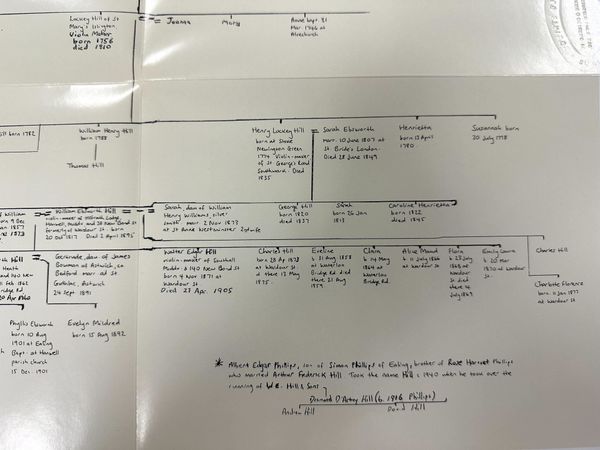 Lockey Hill of St
Mary's Islington
Violin Maker
born 1756
died 1810
= Joanna
Mary
Anne bapt. 31
Mar. 1746 at
Alvechurch
born 1782
William Henry Hill
born 1788
Thomas Hill
Henry Lockey Hill
born at Stoke
Newington Green
1774 Violin-maker
of St George's Road
Southwark. Died
1835
= Sarah Ebsworth
Marr. 10 June 1807 at
St. Bride's London.
Died 28 June 1847
Henrietta
born 13 April
1780
Susannah born
20 July 1778
of William
b 9 Dec
1857
1873
= William Ebsworth Hill
violin-maker of Lodge,
Hanwell, Middx. and 38 New Bond St
formerly of Wardour St. born
20 Oct 1817 Died 2 April 1895
= Sarah, dau of William
Henry Williams, silver
smith marr. 2 Nov 1873
at St Anne Westminster 2nd wife
George Hill
born 1820
died 1837
Sarah
born 26 Jan
Caroline Henrietta
born 1822
died 1845
Hill
Heath
11 Feb 1862
20 Apr 1940
Gertrude, dau of James
Bowman of Astwick, co
Bedford marr at St.
Guthlac, Astwick
24 Sept 1891
Walter Edgar Hill
violin-maker of Southall
Middx. & 140 New Bond St
born 4 Nov 1871 at
Wardour St.
Died 27 Apr. 1905
Charles Hill
born 28 Ap 1878
at Wardour St
died there 17 May
1875.
Eveline
b 31 Aug 1858
at Waterloo
Bridge Rd died
there 21 Aug
1859
Clara
b 14 May
1864 at
Waterloo
Bridge Rd.
Alice Maud
b 11 July 1866
at Wardour St
Flora
b 23 July
1868 at
Wardour
St died
there 4
July 1869
Emily Laura
b. 20 Mar
1870 at Wardour
St.
Charles Hill
Charlotte Florence
born 11 Jan 1877
at Wardour St
Phyllis Ebsworth
born 10 Aug
1901 at Ealing
Bapt. at Hanwell
parish church
15 Dec. 1901
Evelyn Mildred
born 15 Aug 1892
* Albert Edgar Phillips, son of Simon Phillips of Ealing, brother of Rose Harriet Phillips
who married Arthur Frederick Hill. Took the name Hill c 1940 when he took over the
running of W.E. Hill & Sons
Desmond D'Artrey Hill (b. 1916 Phillips)
Andrew Hill
David Hill